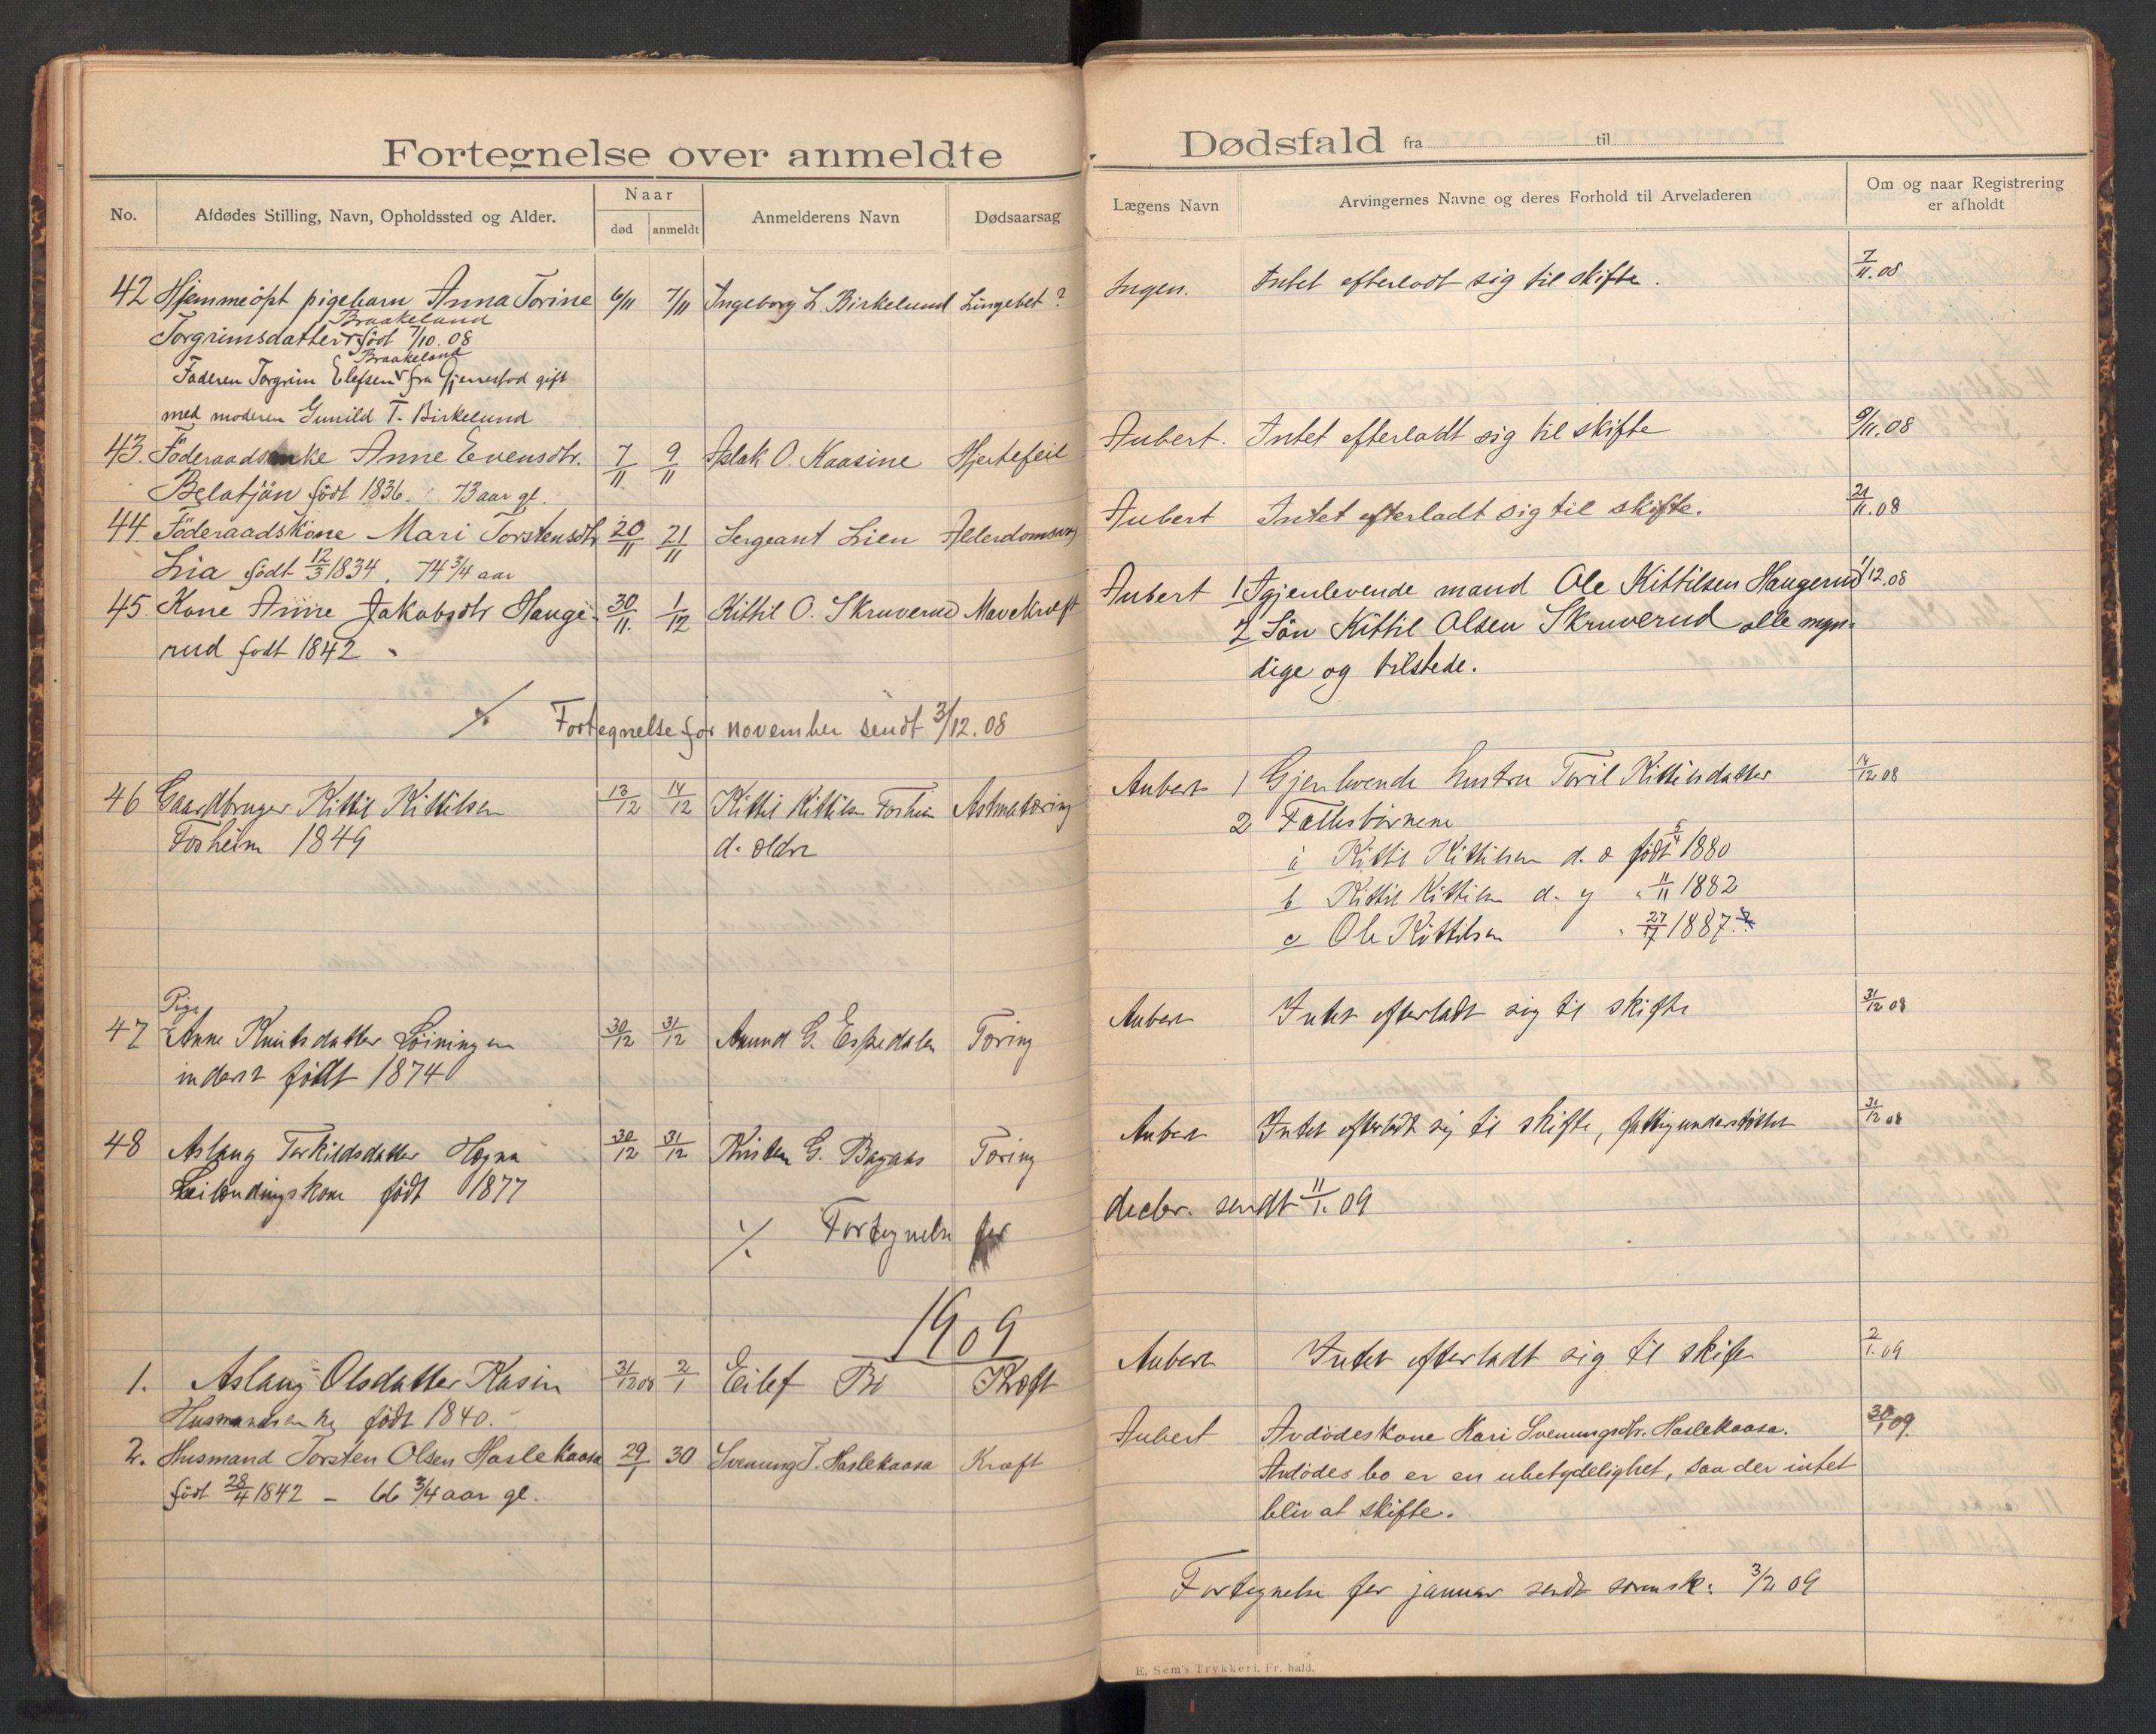 Fortegnelse over anmeldte
No.
Afdødes Stilling, Navn, Opholdssted og Alder.
Naar
død
anmeldt
Anmelderens Navn
Dødsaarsag
42 Hjemmeöpt pigebarn Anna Torine 6/11 7/11 Ingeborg L. Birkelund Lungebet ?
Braakeland
Torgrimsdatter født 7/10.08
Braakeland
Faderen Torgrim Elefsen fra Gjerrestad gift
med moderen Gunild T. Birkelund
43. Föderaadsenke Anne Evensdtr. 7/11 9/11 Aslak O. Kaasine Hjertefeil
Belatjön född 1836. 73 aar gl.
44 Föderaadskone Mari Torstensdtr 20/11 21/11 Sergeant Lien
Lia född 12/3 1834. 74 3/4 aar
45. Kone Anne Jakobsdtr Hauge- 30/11. 1/12 Kittil O. Skruverud Mavekræft
rud født 1842
% Fortegnelse for november sendt 3/12.08
46 Gaardbruger Kittil Kittilsen 13/12 14/12 Kittil Kittilsen Forheim Astmatæring
Forheim 1849 d. ældre
Pige
47 Anne Knutsdatter Löiningen 30/12 31/12 Amund G. Espedalen Tæring
inderst født 1874
48 Aslaug Torkildsdatter Høgna 30/12 31/12 Kristen G. Bagaas Tæring
Leilændingskone født 1877
% Fortegnelse for
1909
1. Aslaug Olsdatter Kasin 31/12 08 2/1 Eilef Bø Kræft
Husmandsenke født 1840.
2. Husmand Torsten Olsen Haslekaasa 29/1 30 Svenung T. Haslekaasa Kræft
född 28/4 1842 - 66 3/4 aar gl.
Dødsfald fra til
Lægens Navn
Arvingernes Navne og deres Forhold til Arveladeren
Om og naar Registrering
er afholdt
Ingen. Intet efterladt sig til skifte. 7/11.08
Aubert. Intet efterladt sig til skifte 9/11.08
Aubert Intet efterladt sig til skifte. 21/11.08
Aubert 1 Igjenlevende mand Ole Kittilsen Haugerud 1/12.08
2 Søn Kittil Olsen Skruverud alle myn-
dige og tilstede.
Aubert 1 Gjenlevende hustru Toril Kittilsdatter 14/12 08
2 Fællesbørnene
a Kittil Kittilsen d. æ født 5/4 1880
b Kittil Kittilsen d. y " 11/11 1882
c Ole Kittilsen " 1887
Aubert Intet efterladt sig til skifte 31/12 08
Aubert Intet efterladt sig til skifte, fattigunderstøttet 31/12 08
decbr. sendt 11/1.09
Aubert Intet efterladt sig til skifte 2/1.09
Aubert Avdödes kone Kari Svenungsdtr. Haslekaasa. 30/1 09.
Avdödes bo er en ubetydelighet, saa der intet
bliv at skifte.
Fortegnelse for januar sendt sorensk. 3/2 09
E. Sem's Trykkeri, Fr. hald.